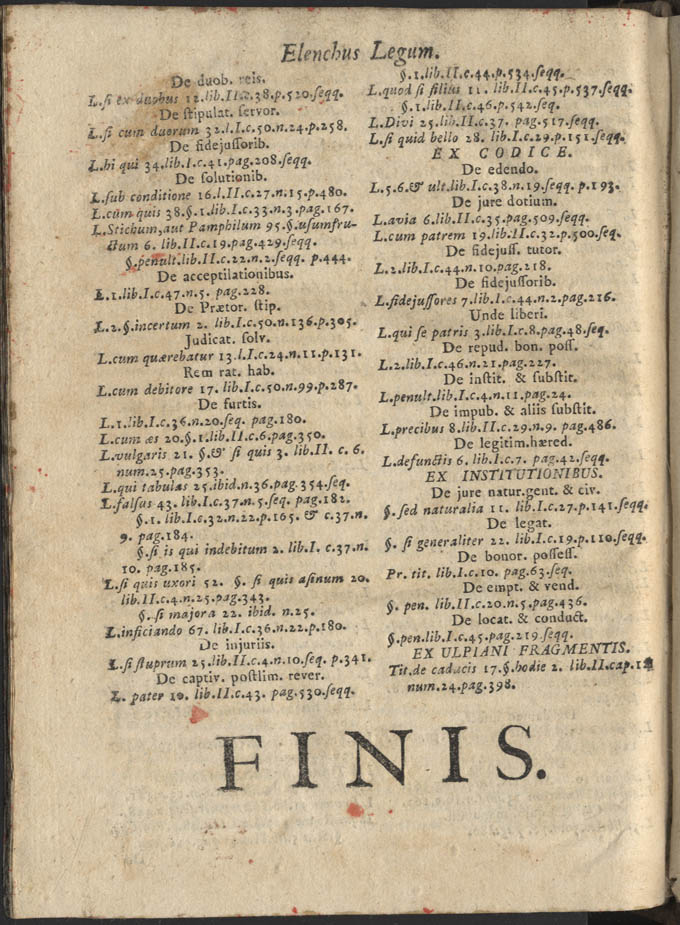 Elenchus Legum.
De duob. reis.
L. si ex duobus 12. lib. II. c. 38. p. 520. seqq.
De stipulat. servor.
L. si cum duerum 32. l. I. c. 50. n. 24. p. 258.
De fidejussorib.
L. hi qui 34. lib. I. c. 41. pag. 208. seqq.
De solutionib.
L. sub conditione 16. l. II. c. 27. n. 15. p. 480.
L. cùm quis 38. §. 1. lib. I. c. 33. n. 3. pag. 167.
L. Stichum, aut Pamphilum 95. §. usumfru-
ctum 6. lib. II. c. 19. pag. 429. seqq.
§. penult. lib. II. c. 22. n. 2. seqq. p. 444.
De acceptilationibus.
L. 1. lib. I. c. 47. n. 5. pag. 228.
De Prætor. stip.
L. 2. §. incertum 2. lib. I. c. 50. n. 136. p. 305.
Judicat. solv.
L. cum quærebatur 13. l. I. c. 24. n. 11. p. 131.
Rem rat. hab.
L. cum debitore 17. lib. I. c. 50. n. 99. p. 287.
De furtis.
L. 1. lib. I. c. 36. n. 20. seq. pag. 180.
L. cum æs 20. §. 1. lib. II. c. 6. pag. 350.
L. vulgaris 21. §. & si quis 3. lib. II. c. 6.
num. 25. pag. 353.
L. qui tabulas 25. ibid. n. 36. pag. 354. seq.
L. falsus 43. lib. I. c. 37. n. 5. seq. pag. 182.
§. 1. lib. I. c. 32. n. 22. p. 165. & c. 37. n.
9. pag. 184.
§. si is qui indebitum 2. lib. I. c. 37. n.
10. pag. 185.
L. si quis uxori 52. §. si quis asinum 20.
lib. II. c. 4. n. 25. pag. 343.
§. si majora 22. ibid. n. 25.
L. inficiando 67. lib. I. c. 36. n. 22. p. 180.
De injuriis.
L. si stuprum 25. lib. II. c. 4. n. 10. seq. p. 341.
De captiv. postlim. rever.
L. pater 10. lib. II. c. 43. pag. 530. seqq.
§. 1. lib. II. c. 44. p. 534. seqq.
L. quod si filius 11. lib. II. c. 45. p. 537. seqq.
§. 1. lib. II. c. 46. p. 542. seq.
L. Divi 25. lib. II. c. 37. pag. 517. seqq.
L. si quid bello 28. lib. I. c. 29. p. 151. seqq.
EX CODICE.
De edendo.
L. 5. 6. & ult. lib. I. c. 38. n. 19. seqq. p. 193.
De jure dotium.
L. avia 6. lib. II. c. 35. pag. 509. seqq.
L. cum patrem 19. lib. II. c. 32. p. 500. seq.
De fidejuss. tutor.
L. 2. lib. I. c. 44. n. 10. pag. 218.
De fidejussorib.
L. fidejussores 7. lib. I. c. 44. n. 2. pag. 216.
Unde liberi.
L. qui se patris 3. lib. I. c. 8. pag. 48. seq.
De repud. bon. poss.
L. 2. lib. I. c. 46. n. 21. pag. 227.
De instit. & substit.
L. penult. lib. I. c. 4. n. 11. pag. 24.
De impub. & aliis substit.
L. precibus 8. lib. II. c. 29. n. 9. pag. 486.
De legitim. hæred.
L. defunctis 6. lib. I. c. 7. pag. 42. seqq.
EX INSTITUTIONIBUS.
De jure natur. gent. & civ.
§. sed naturalia 11. lib. I. c. 27. p. 141. seqq.
De legat.
§. si generaliter 22. lib. I. c. 19. p. 110. seqq.
De bonor. possess.
Pr. tit. lib. I. c. 10. pag. 63. seq.
De empt. & vend.
§. pen. lib. II. c. 20. n. 5. pag. 436.
De locat. & conduct.
§. pen. lib. I. c. 45. pag. 219. seqq.
EX ULPIANI FRAGMENTIS.
Tit. de caducis 17. §. hodie 2. lib. II. cap.
num. 24. pag. 398.
FINIS.